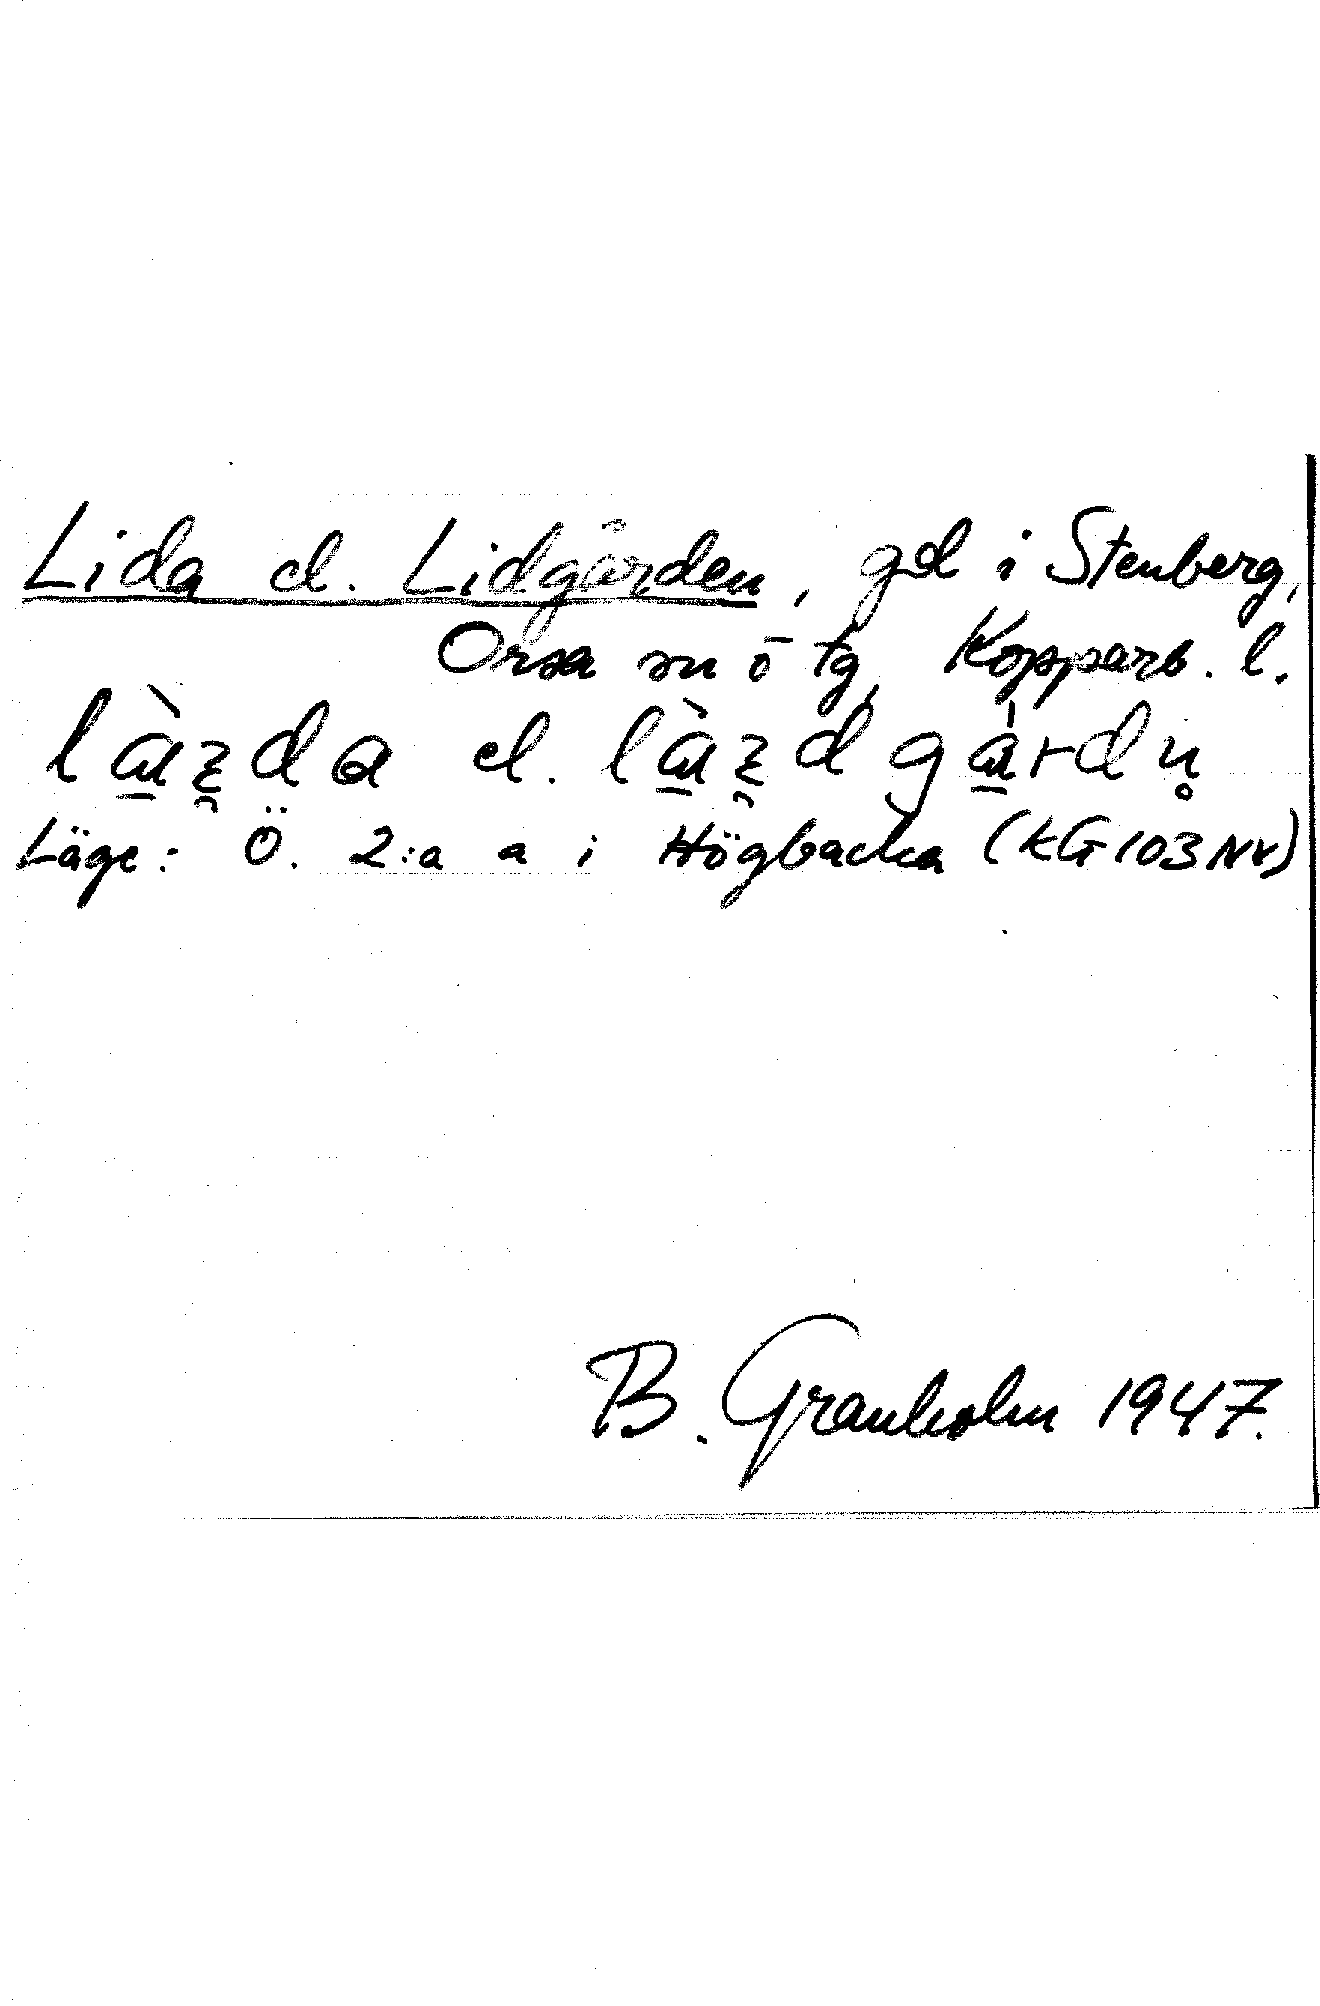 Lida el. Lidgården, gd i Stenberg,
Orsa sn o tg, Kopparb. l.
Läge: Ö. 2:a a i Högbacka (KG 103 NV)
B. Granholm 1947.